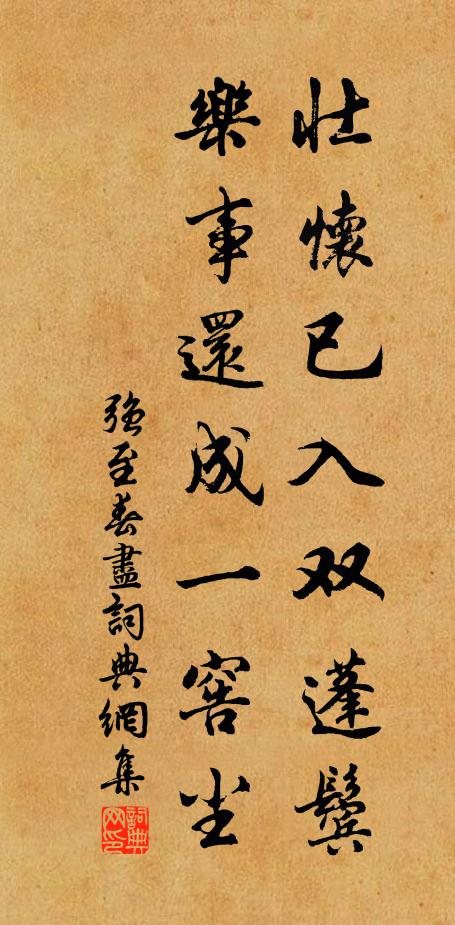 壮懷已入双蓬鬓
樂事還成一窖尘
强至春盡詞典網集
詞典网印